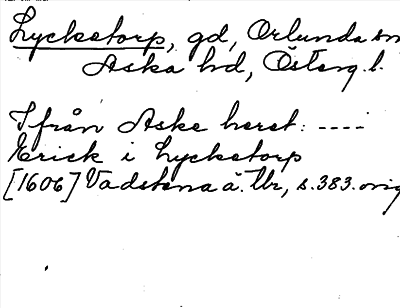 Lyckstorp, gd, Orlunda sn
Aska hd, Östergl.
Ifrån Aske heret: ----
Erick i Lycketorp
[1606] Vadstena ä. Tbr, s. 383. orig